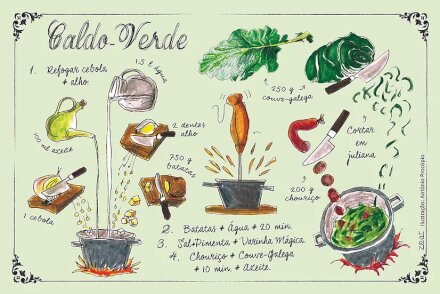 Caldo-Verde
1. Refogar cebola
+ alho.
1,5 l água
100 ml azeite
2 dentes
alho
750 g
batatas
1 cebola
250 g
couve-galega
Cortar
em
juliana
200 g
chouriço
2. Batatas + Água + 20 min.
3. Sal+Pimenta + Varinha Mágica
4. Chouriço + Couve-Galega
+ 10 min + Azeite.
Ilustração: António Procópio